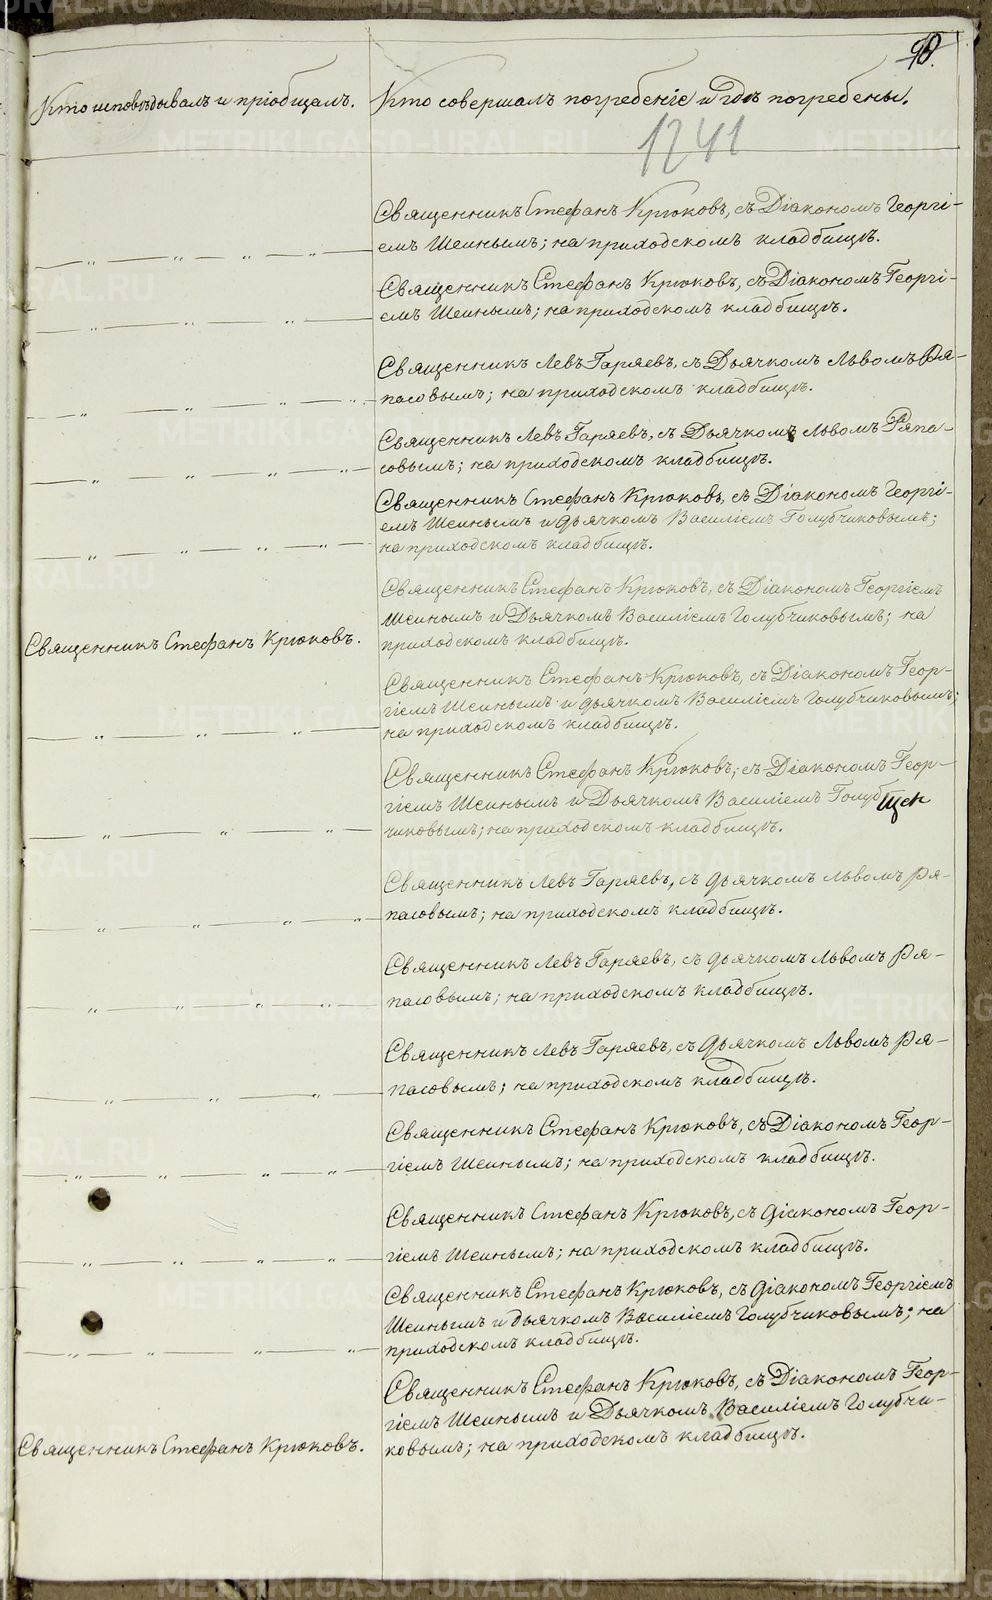 90.
Кто исповѣдывалъ и пріобщалъ.
Кто совершалъ погребеніе и гдѣ погребены.
1241
Священникъ Стефанъ Крюковъ, съ Діакономъ Георгі-
емъ Шеинымъ; на приходскомъ кладбищѣ.
Священникъ Стефанъ Крюковъ, съ Діакономъ Георгі-
емъ Шеинымъ; на приходскомъ кладбищѣ.
Священникъ Левъ Гаряевъ, съ Дьячкомъ Львомъ Ря-
пасовымъ; на приходскомъ кладбищѣ.
Священникъ Левъ Гаряевъ, съ Дьячкомъ Львомъ Ряпа-
совымъ; на приходскомъ кладбищѣ.
Священникъ Стефанъ Крюковъ, съ Діакономъ Георгі-
емъ Шеинымъ и дьячкомъ Василіемъ Голубчиковымъ;
на приходскомъ кладбищѣ.
Священникъ Стефанъ Крюковъ, съ Діакономъ Георгіемъ
Шеинымъ и Дьячкомъ Василіемъ Голубчиковымъ; на
Священникъ Стефанъ Крюковъ.
приходскомъ кладбищѣ.
Священникъ Стефанъ Крюковъ, съ Діакономъ Геор-
гіемъ Шеинымъ и дьячкомъ Василіемъ Голубчиковымъ;
на приходскомъ кладбищѣ.
Священникъ Стефанъ Крюковъ, съ Діакономъ Геор-
гіемъ Шеинымъ и Дьячкомъ Василіемъ Голуб
чиковымъ; на приходскомъ кладбищѣ.
Священникъ Левъ Гаряевъ, съ дьячкомъ Львомъ Ря-
пасовымъ; на приходскомъ кладбищѣ.
Священникъ Левъ Гаряевъ, съ дьячкомъ Львомъ Ря-
пасовымъ; на приходскомъ кладбищѣ.
Священникъ Левъ Гаряевъ, съ дьячкомъ Львомъ Ря-
пасовымъ; на приходскомъ кладбищѣ.
Священникъ Стефанъ Крюковъ, съ Діакономъ Геор-
гіемъ Шеинымъ; на приходскомъ кладбищѣ.
Священникъ Стефанъ Крюковъ, съ діакономъ Геор-
гіемъ Шеинымъ; на приходскомъ кладбищѣ.
Священникъ Стефанъ Крюковъ, съ діакономъ Георгіемъ
Шеинымъ и дьячкомъ Василіемъ Голубчиковымъ; на
приходскомъ кладбищѣ.
Священникъ Стефанъ Крюковъ, съ Діакономъ Геор-
гіемъ Шеинымъ и Дьячкомъ Василіемъ Голубчи-
Священникъ Стефанъ Крюковъ.
ковымъ; на приходскомъ кладбищѣ.
METRIKI.GASO-URAL.RU